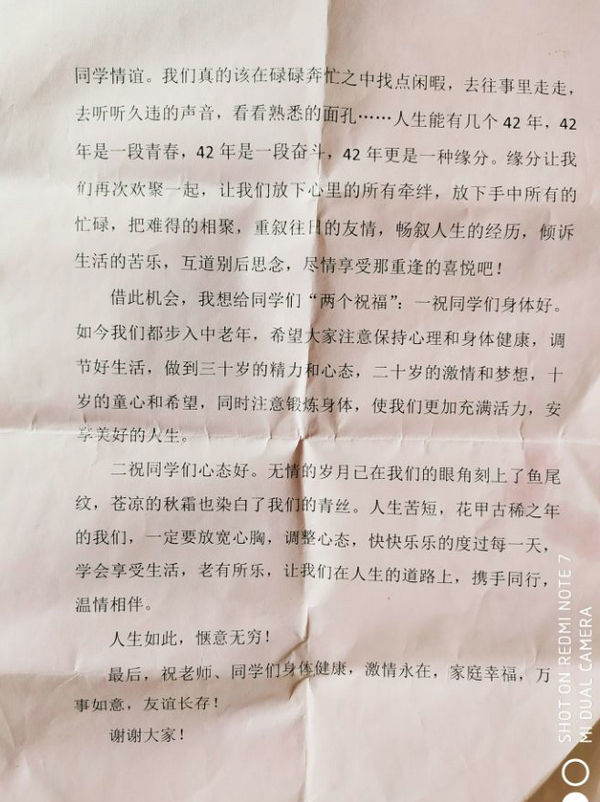 同学情谊。我们真的该在碌碌奔忙之中找点闲暇，去往事里走走，
去听听久违的声音，看看熟悉的面孔……人生能有几个 42 年，42
年是一段青春，42 年是一段奋斗，42 年更是一种缘分。缘分让我
们再次欢聚一起，让我们放下心里的所有牵绊，放下手中所有的
忙碌，把难得的相聚，重叙往日的友情，畅叙人生的经历，倾诉
生活的苦乐，互道别后思念，尽情享受那重逢的喜悦吧！
借此机会，我想给同学们“两个祝福”：一祝同学们身体好。
如今我们都步入中老年，希望大家注意保持心理和身体健康，调
节好生活，做到三十岁的精力和心态，二十岁的激情和梦想，十
岁的童心和希望，同时注意锻炼身体，使我们更加充满活力，安
享美好的人生。
二祝同学们心态好。无情的岁月已在我们的眼角刻上了鱼尾
纹，苍凉的秋霜也染白了我们的青丝。人生苦短，花甲古稀之年
的我们，一定要放宽心胸，调整心态，快快乐乐的度过每一天，
学会享受生活，老有所乐，让我们在人生的道路上，携手同行，
温情相伴。
人生如此，惬意无穷！
最后，祝老师、同学们身体健康，激情永在，家庭幸福，万
事如意，友谊长存！
谢谢大家！
SHOT ON REDMI NOTE 7
MI DUAL CAMERA